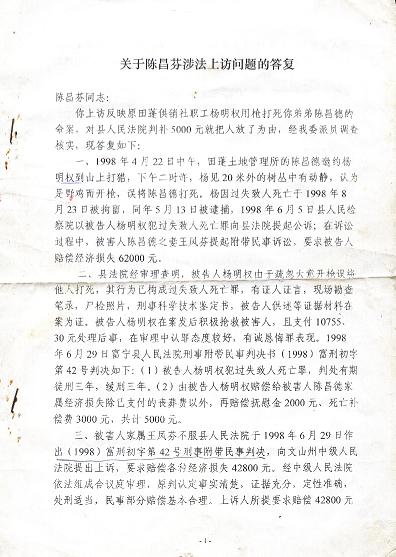 关于陈昌芬涉法上访问题的答复
陈昌芬同志：
你上访反映原田蓬供销社职工杨明权用枪打死你弟弟陈昌德的
命案，对县人民法院判补5000元就把人放了为由，经我委派员调查
核实，现答复如下：
一、1998年4月22日中午，田蓬土地管理所的陈昌德邀约杨
明权到山上打猎，下午二时许，杨见20米外的树丛中有动静，认为
是野鸡而开枪，误将陈昌德打死。杨因过失致人死亡于1998年8
月23日被拘留，同年5月13日被逮捕，1998年6月5日县人民检
察院以被告人杨明权犯过失致人死亡罪向县法院提起公诉；在诉讼
过程中，被害人陈昌德之妻王凤芬提起附带民事诉讼，要求被告人
赔偿经济损失62000元。
二、县法院经审理查明，被告人杨明权由于疏忽大意开枪误将
他人打死，其行为已构成过失致人死亡罪，有证人证言，现场勘查
笔录，尸检照片，刑事科学技术鉴定书，被告人供述等证据材料在
案为证。被告人杨明权在案发后积极抢救被害人，且支付10755.
30元处理后事，在审理中认罪态度较好，有诚恳悔罪表现。1998
年6月29日富宁县人民法院刑事附带民事判决书（1998）富刑初字
第42号判决如下：（1）被告人杨明权犯过失致人死亡罪，判处有期
徒刑三年，缓刑三年。（2）由被告人杨明权赔偿给被害人陈昌德家
属经济损失除已支付的丧葬费以外，再赔偿抚慰金2000元、死亡补
偿费3000元，共计5000元。
三、被害人家属王凤芬不服县人民法院于1998年6月29日作
出（1998）富刑初字第42号刑事附带民事判决，向文山州中级人民
法院提出上诉，要求赔偿各种经济损失42800元。经中级人民法院
依法组成合议庭审理，原判认定事实清楚，证据充分，定性准确，
处刑适当，民事部分赔偿基本合理。上诉人所提要求赔偿42800元
-1-